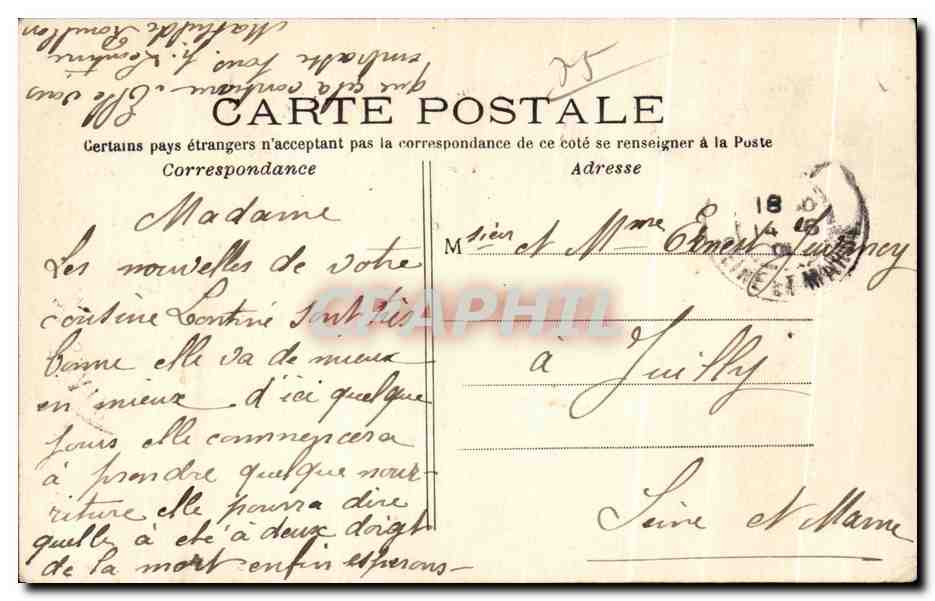 CARTE POSTALE
Certains pays étrangers n'acceptant pas la correspondance de ce coté se renseigner à la Poste
Correspondance
Adresse
Madame
Les nouvelles de votre
cousine Lontine sont très
bonne elle va de mieux
en mieux d'ici quelque
jours elle commencera
à prendre quelque nour-
riture elle pourra dire
quelle à été à deux doigt
de la mort enfin esperons-
que cela continue. Elle vous
embrasse tous p. Leontine
Mathilde
25
Msieur et Mme Ernest
à Juilly
Seine et Marne
18
14
SEINE ET MARNE
CPAPHIL